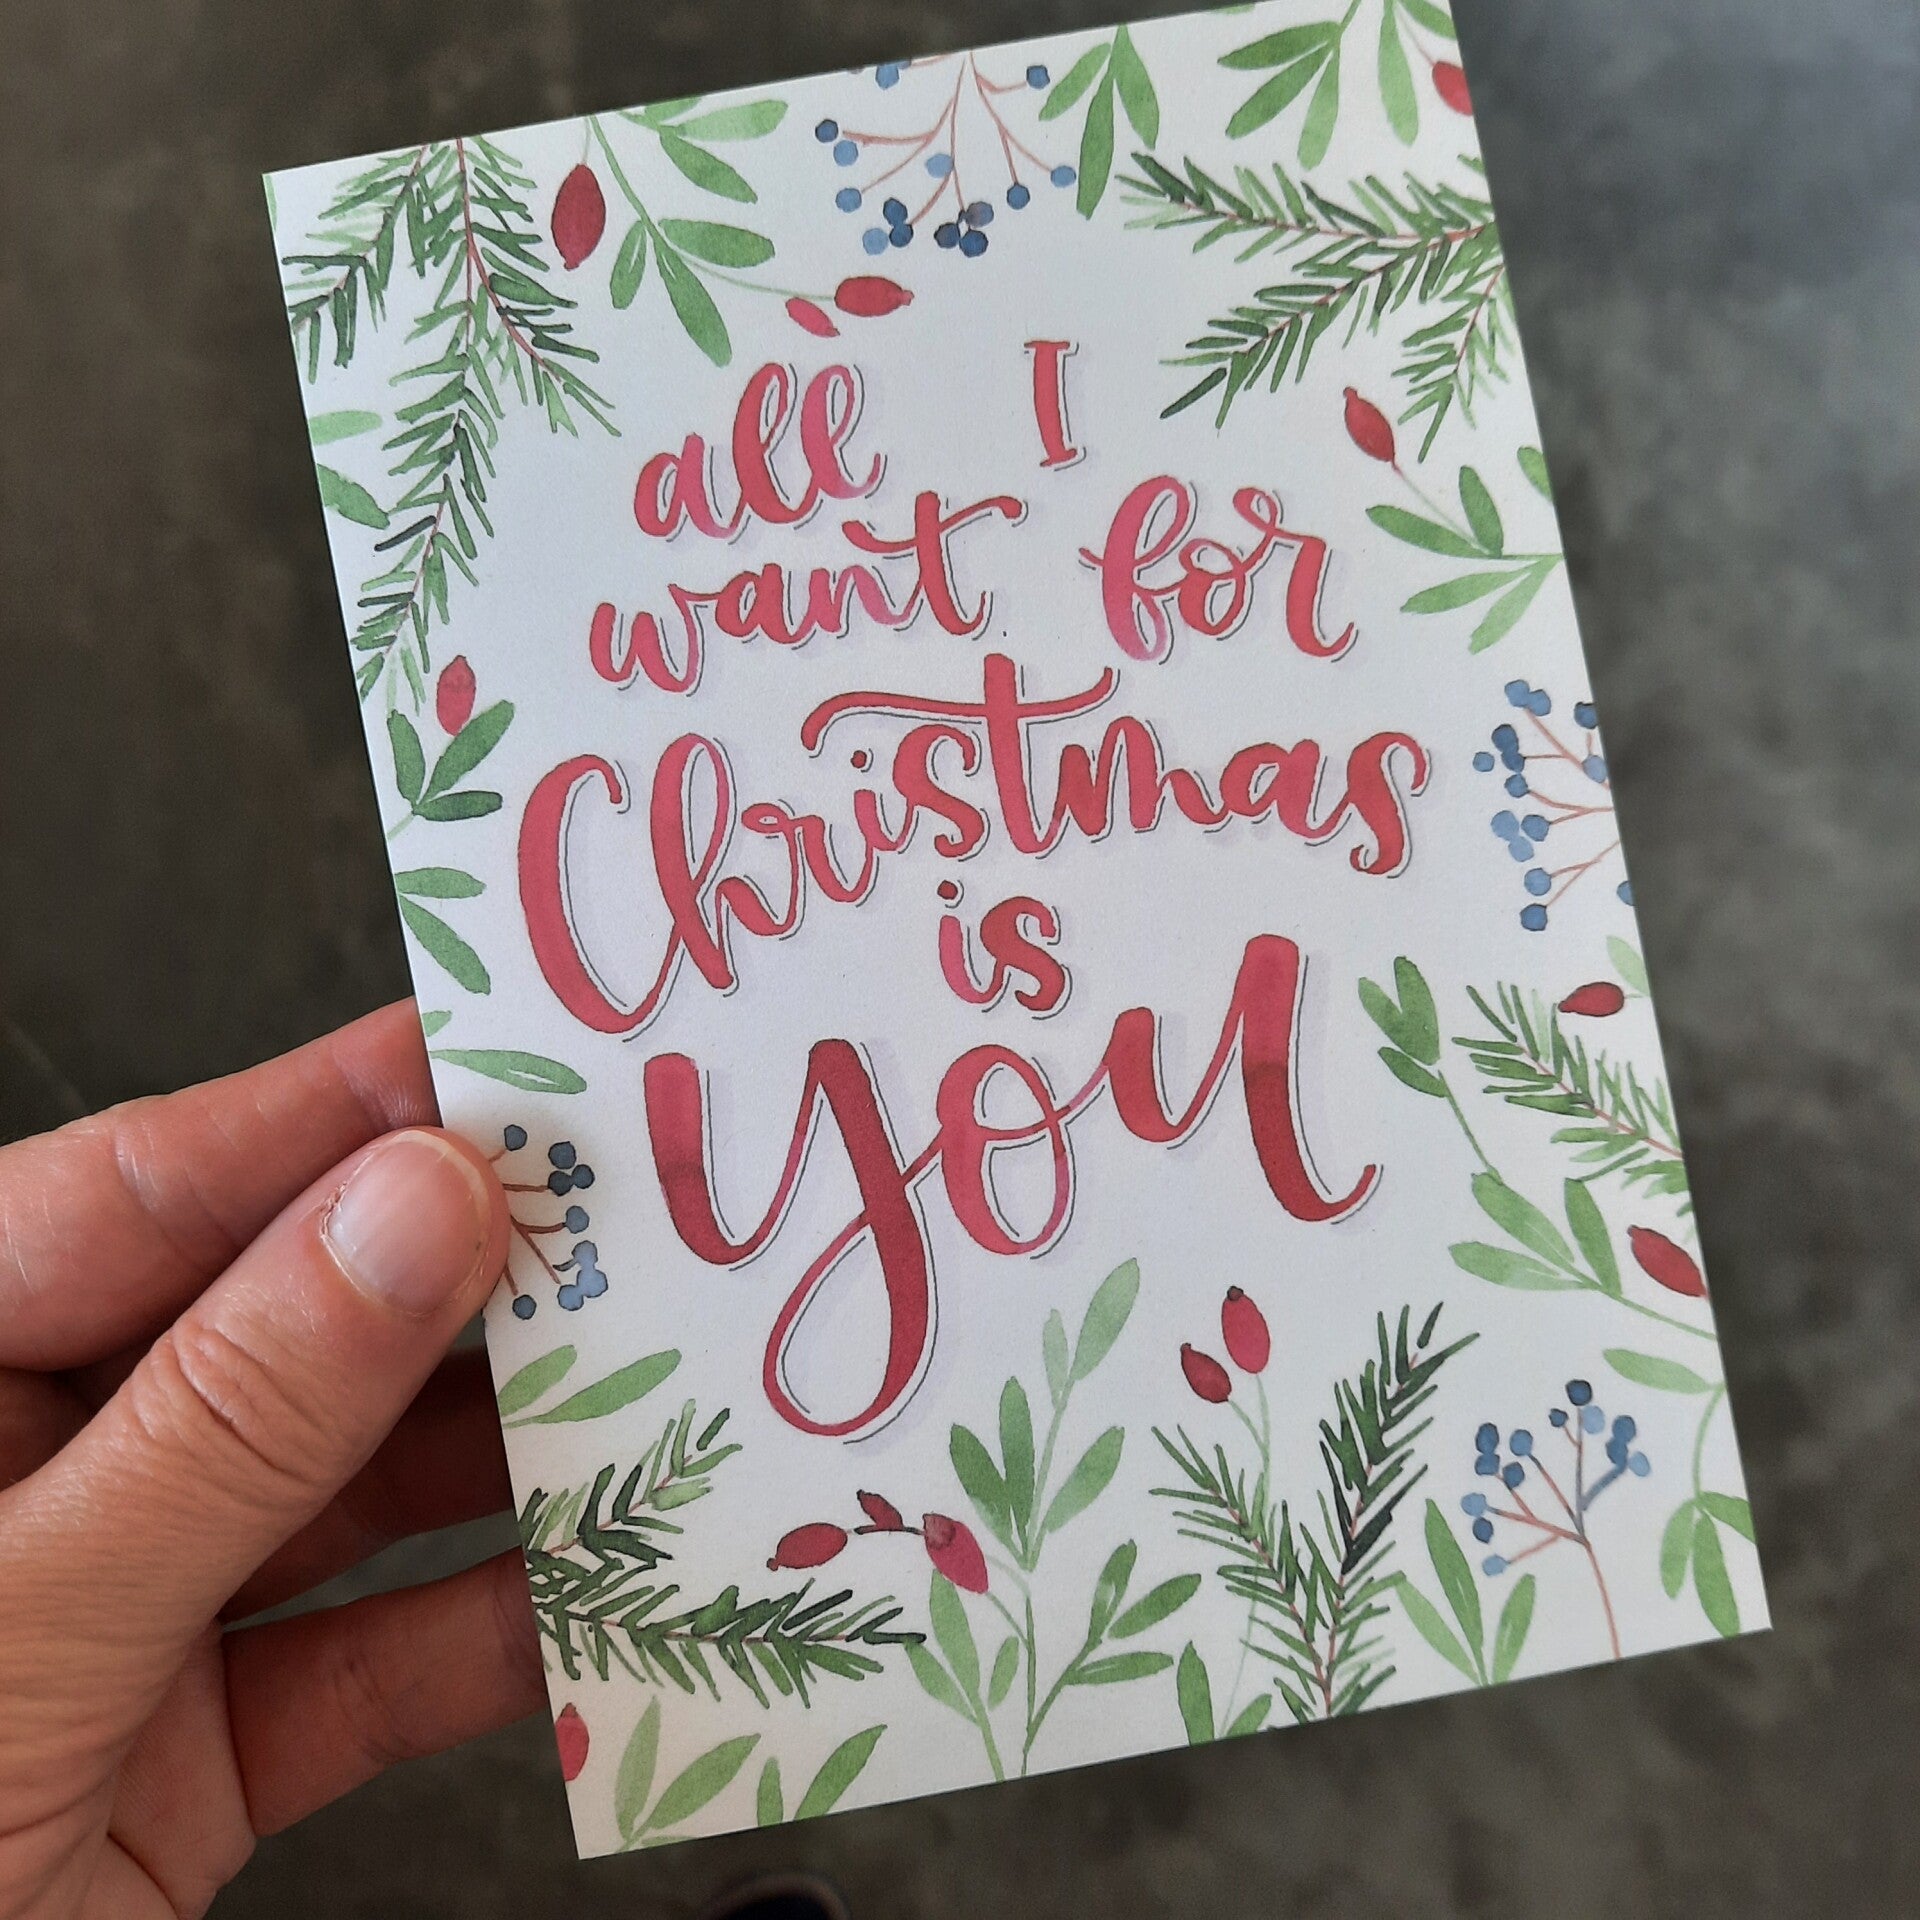 all I
want for
Christmas
is
you